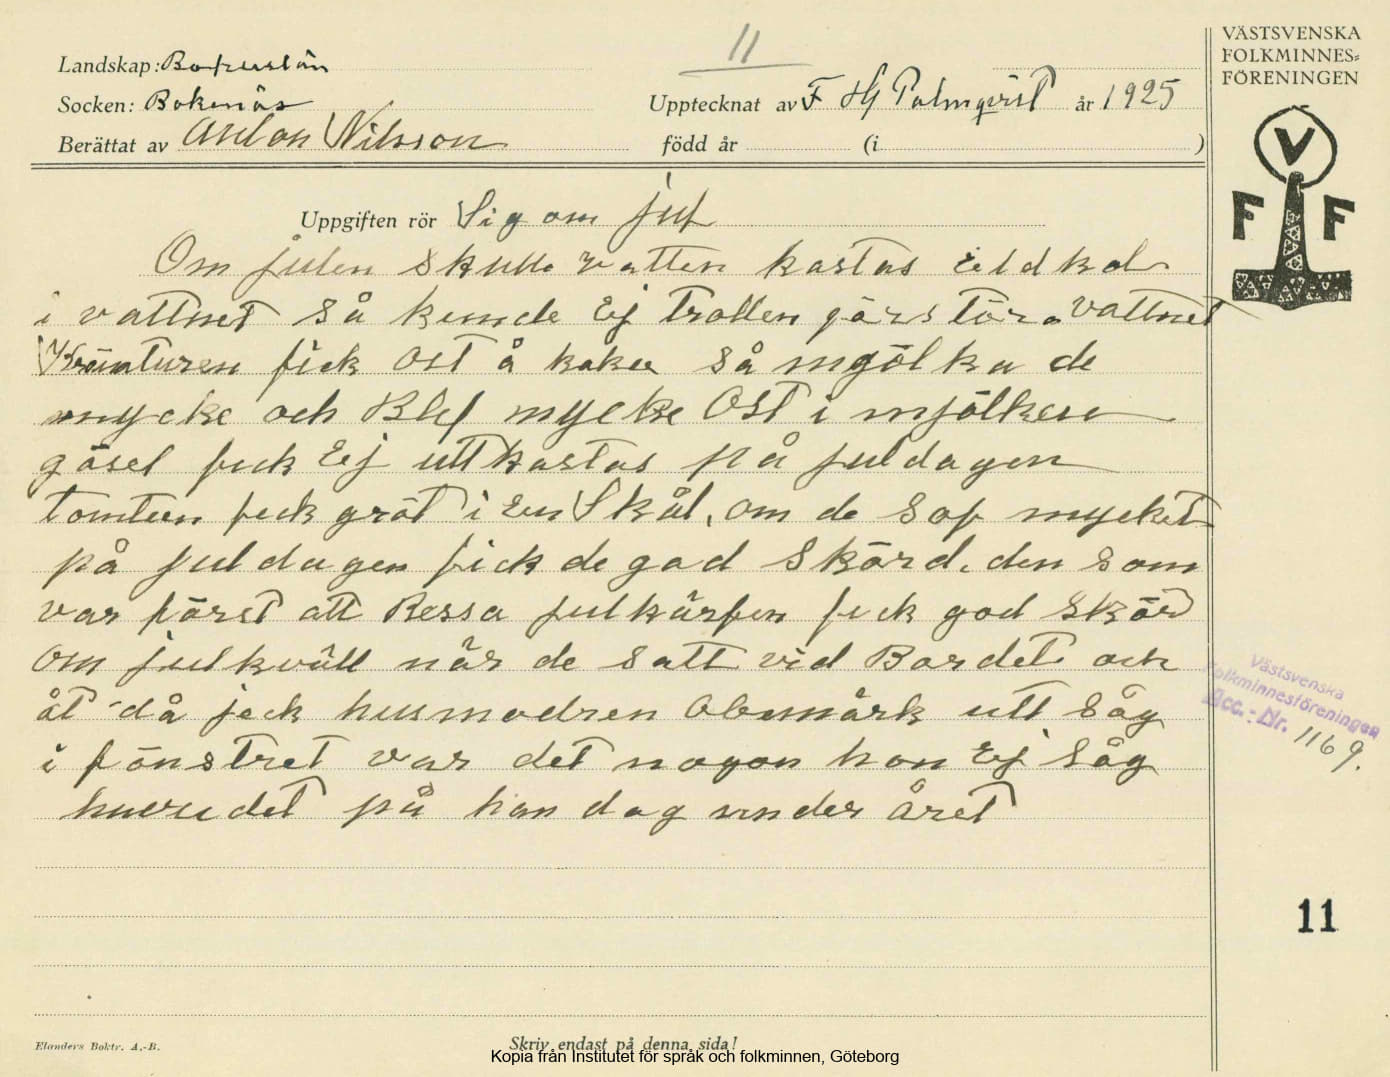 11
VÄSTSVENSKA
FOLKMINNES=
FÖRENINGEN
Landskap: Bohuslän
Socken: Bokenäs
Upptecknat av F Hj Palmqvist år 1925
Berättat av Anton Nilsson
född år (i )
V
F F
Uppgiften rör Sig om jul
Om julen skulle vatten kastas Eldkol
i vattnet så kunde Ej trollen förstöra vattnet
Kräaturen fick ost å kaker så mjölka de
mycke och Blef mycke Ost i mjölken
gösel feck Ej utt kastas på juldagen
tomten feck gröt i en Skål, om de sof mycket
på juldagen fick de god Skörd. den som
var först att Ressa julkärfen feck god Skörd
om julkväll när de satt vid Bordet och
åt då jeck husmodren obemärk utt såg
i fönstret var det nogon hon Ej såg
huvudet på han dog under året
Västsvenska
Folkminnesföreningen
Acc.-Nr. 1169.
11
Elanders Boktr. A.-B.
Skriv endast på denna sida!
Kopia från Institutet för språk och folkminnen, Göteborg